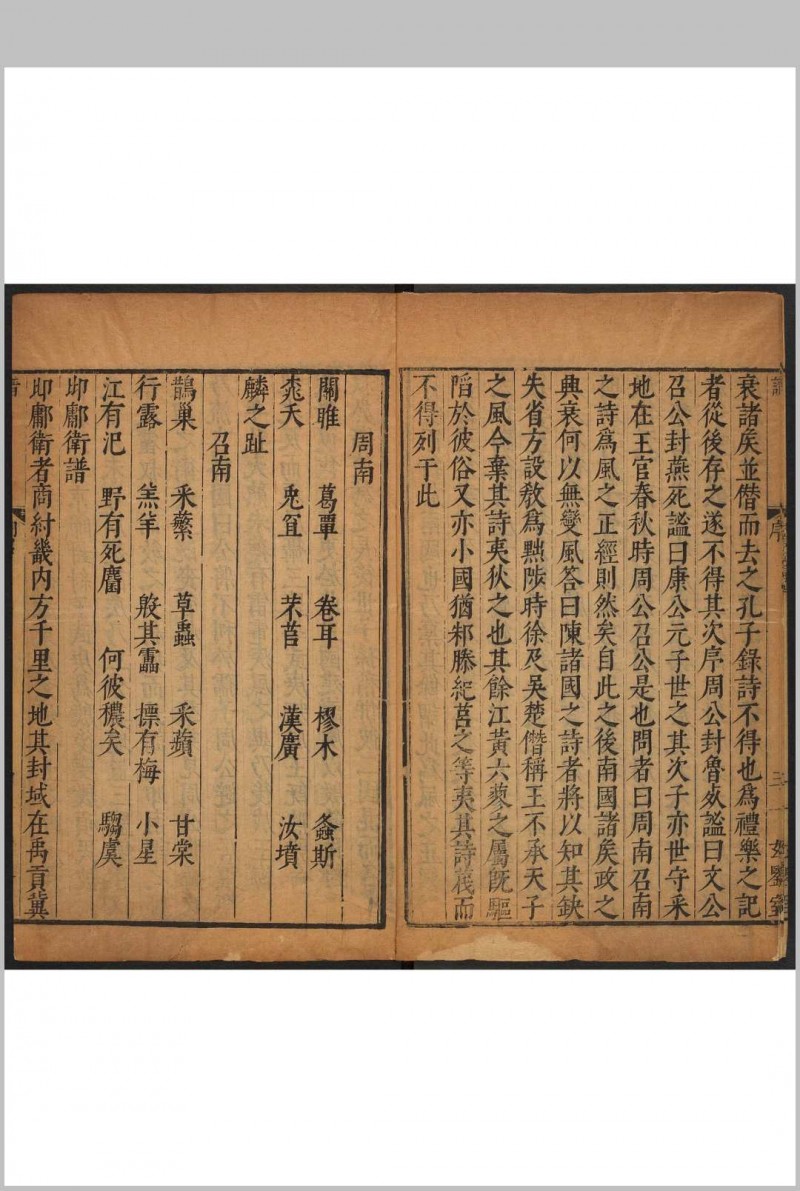 衰諸矦並僣而去之孔子錄詩不得也爲禮樂之記
者從後存之遂不得其次序周公封魯𣦸謚曰文公
召公封燕死謚曰康公元子世之其次子亦世守采
地在王官春秋時周公召公是也問者曰周南召南
之詩爲風之正經則然矣自此之後南國諸矦政之
興衰何以無變風荅曰陳諸國之詩者將以知其鈌
失省方設敎爲黜陟時徐及吳楚僣稱王不承天子
之風今棄其詩夷狄之也其餘江黃六蓼之屬旣驅
陷於彼俗又亦小國猶邾滕紀莒之等夷其詩蔑而
不得列于此
周南
關雎 葛覃 卷耳 樛木 螽斯
桃夭 兎罝 芣苢 漢廣 汝墳
麟之趾
召南
鵲巢 采蘩 草蟲 采蘋 甘棠
行露 羔羊 殷其靁 摽有梅 小星
江有汜 野有死麕 何彼穠矣 騶虞
邶鄘衛譜
邶鄘衛者商紂畿内方千里之地其封域在禹貢冀